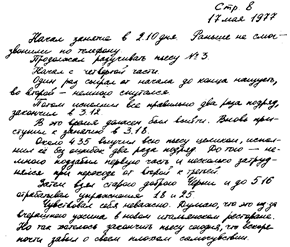 Стр. 8
17 мая 1977
Начал занятие в 2.10 дня. Раньше не смог —
звонили по телефону
Продолжал разучивать пьесу №3.
Начал с четвертой части.
Один раз сыграл от начала до конца наизусть,
во второй — немного спутался.
Потом исполнил все правильно два раза подряд,
закончил в 3.12
В это время должен был выйти. Вновь при-
ступил к занятию в 3.18.
Около 4.35 выучил всю пьесу целиком, испол-
нил её без ошибок два раза подряд. До того — не-
много подзабыл первую часть и несколько затруд-
нялся при переходе от второй к третьей
Затем взял старого доброго Черни и до 5.16
отрабатывал упражнения 18 и 25.
Чувствовал себя неважно. Думаю, что это из-за
вчерашнего ужина в новом итальянском ресторане.
Но так хотелось закончить пьесу сегодня, что вскоре
почти забыл о своем плохом самочувствии.